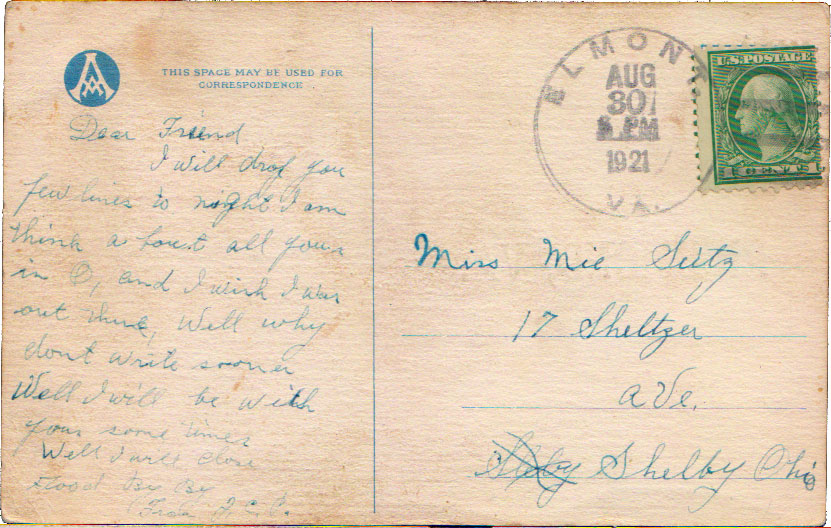 THIS SPACE MAY BE USED FOR
CORRESPONDENCE
Dear Friend
I will drop you
few lines to night I am
think a bout all yours
in O, and I wish I was
out there, Well why
dont write sooner
Well I will be with
yours some times
Well I will close
By By
From
ELMONT
AUG
30
PM
1921
VA.
U.S. POSTAGE
1 CENT 1
Miss Mie Seitz
17 Sheltzer
aVe.
Shelby Ohio